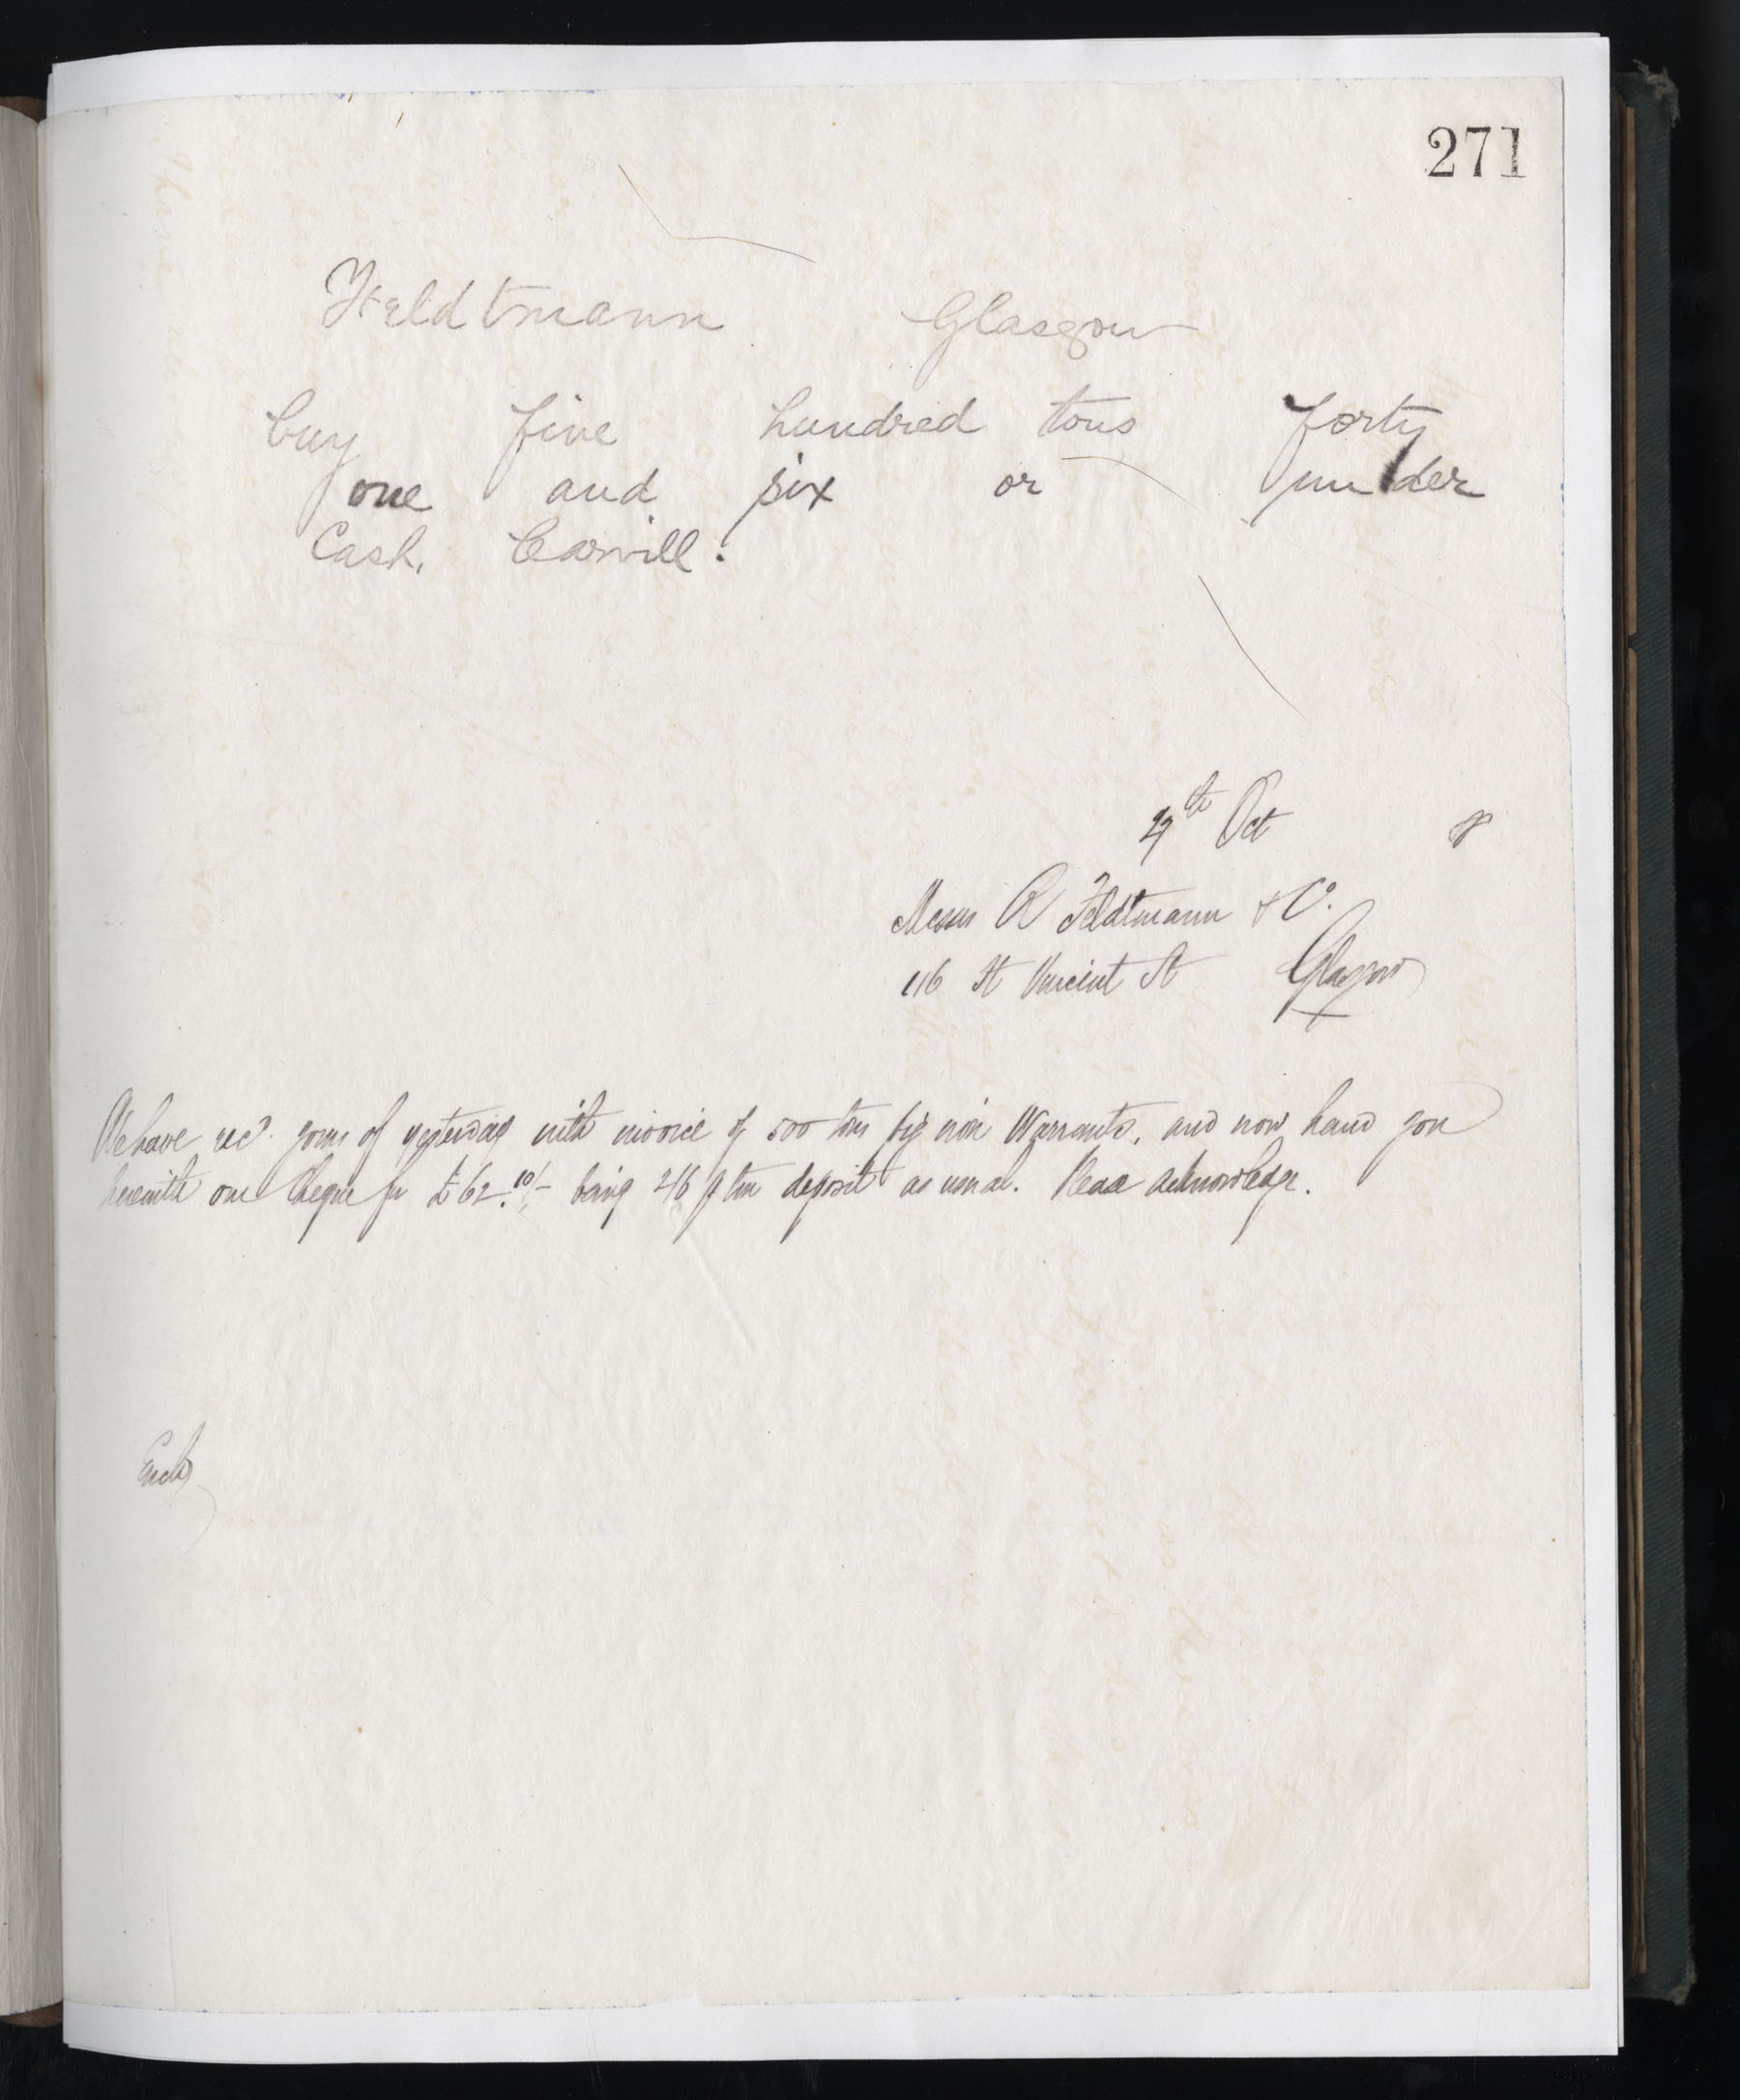 271
Feldtmann Glasgow
buy five hundred tons forty
one and six or under
Cash. Carvill.
9th Oct 8
Messrs R Feldtmann & Co.
116 St Vincent St Glasgow
We have recd. yours of yesterday with invoice of 500 tons pig iron Warrants, and now hand you
herewith our Cheque for £62.10/- being 2/6 p ton deposit as usual. Please acknowledge.